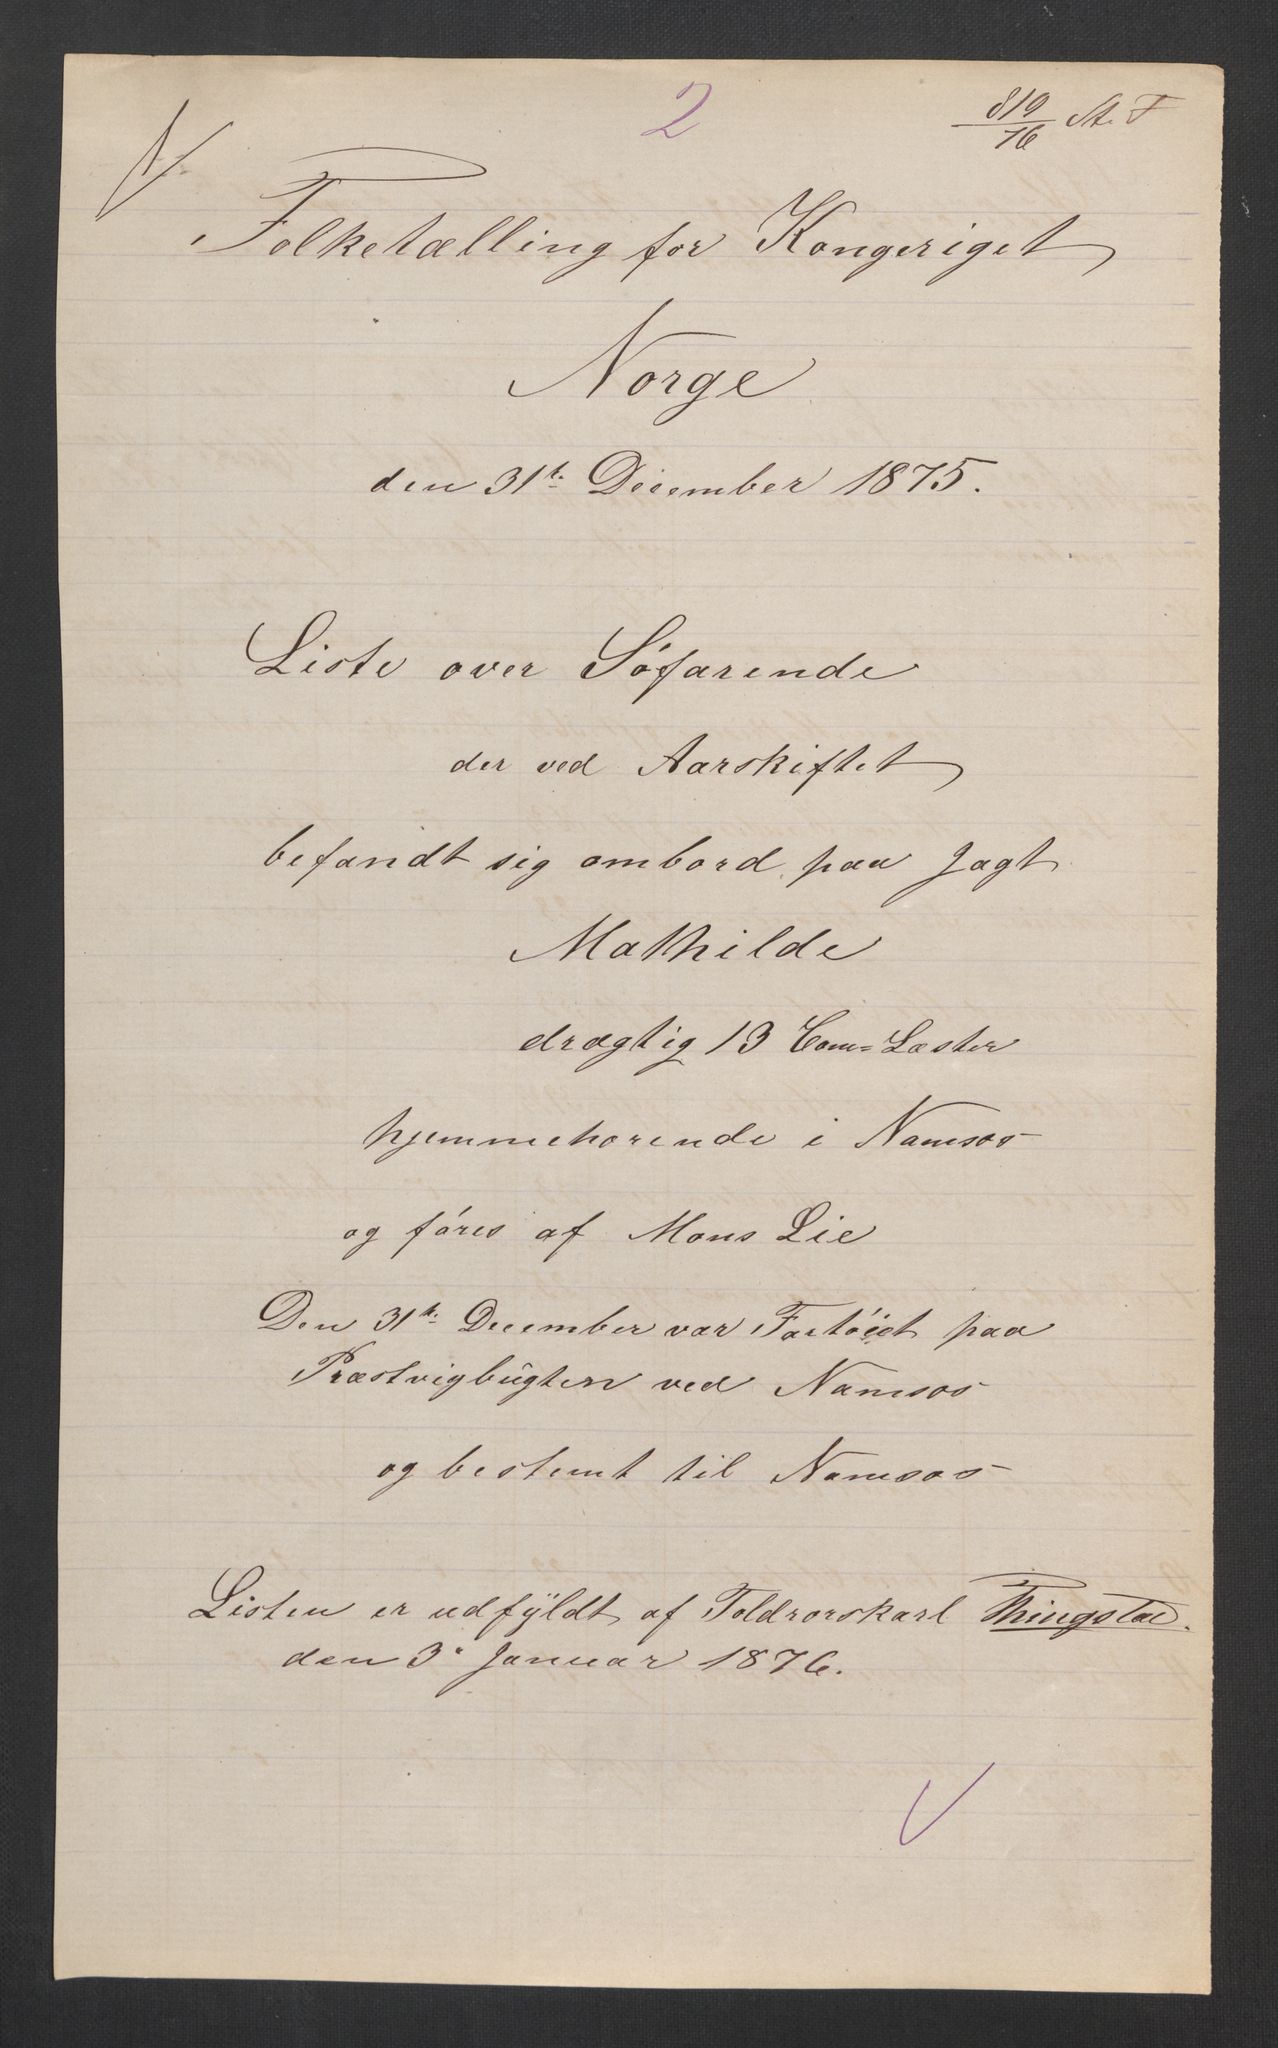 2
819/76 St. F
Folketælling for Kongeriget
Norge
den 31te December 1875.
Liste over Søfarende
der ved Aarskiftet
befandt sig ombord paa Jagt
Mathilde
drægtig 13 Com= Læster
hjemmehorende i Namsos
og føres af Mons Lie
Den 31te December var Fartøiet paa
Præstvigbugten ved Namsos
og bestemt til Namsos
Listen er udfyldt af Toldrorskarl Thingstad.
den 3e Januar 1876.